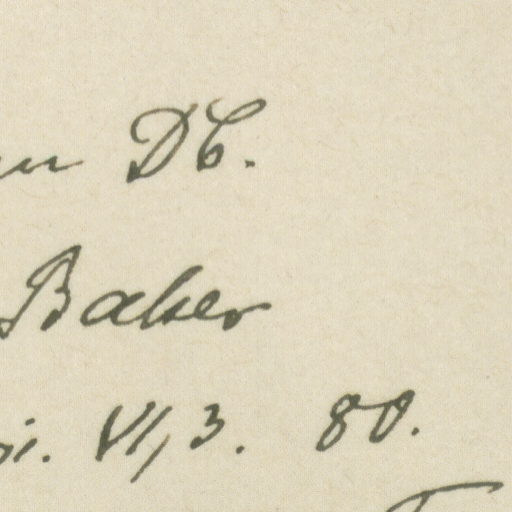 DC.
Baker
VI, 3. 80.